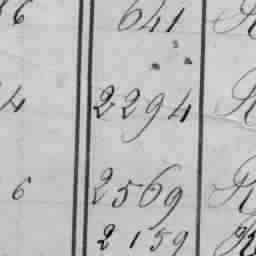 6 641
4 2294
6 2569 R
2159 R